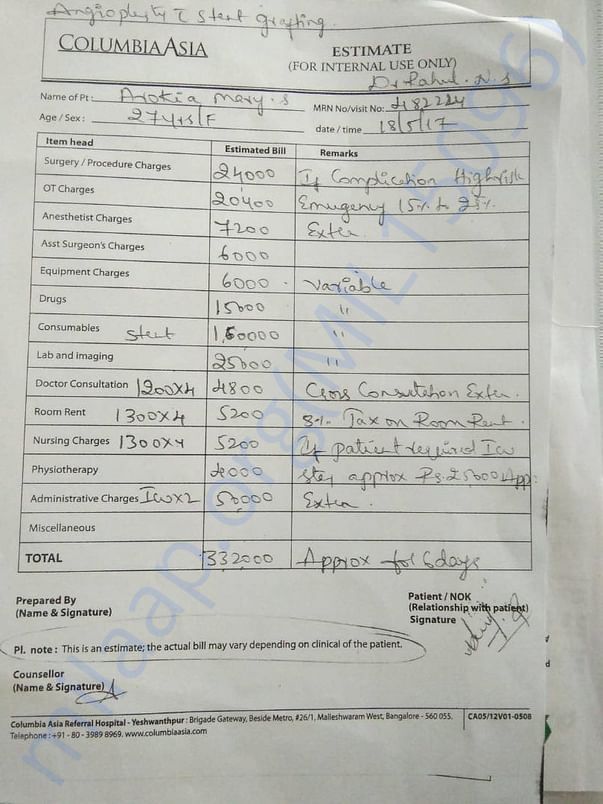 Angioplasty c stent grafting
COLUMBIA ASIA
ESTIMATE
(FOR INTERNAL USE ONLY)
Dr Rahul. N. S
Name of Pt : Arokia Mary. S
MRN No/visit No:
Age / Sex : 27 yrs/F
date / time 18/5/17
Item head Estimated Bill Remarks
Surgery / Procedure Charges 24000 If Complication High risk
OT Charges 20400 Emergency 15% to 25%
Anesthetist Charges 7200 Extra.
Asst Surgeon's Charges 6000
Equipment Charges 6000 . Variable
Drugs 15000 "
Consumables stent 1,60000 "
Lab and imaging 25000 "
Doctor Consultation 1200X4 4800 Cross Consultation Extra.
Room Rent 1300X4 5200 8% Tax on Room Rent.
Nursing Charges 1300X4 5200 If patient required Icu
Physiotherapy 4000 stay approx Rs. 25000 App:
Administrative Charges Icu X2 50000 Extra.
Miscellaneous
TOTAL 332000 Approx for 6 days
Prepared By
(Name & Signature)
Patient / NOK
(Relationship with patient)
Signature
Pl. note : This is an estimate; the actual bill may vary depending on clinical of the patient.
Counsellor
(Name & Signature)
Columbia Asia Referral Hospital - Yeshwanthpur : Brigade Gateway, Beside Metro, #26/1, Malleshwaram West, Bangalore - 560 055.
Telephone : +91 - 80 - 3989 8969. www.columbiaasia.com
CA05/12V01-0508
milaap.org(MIL15096)